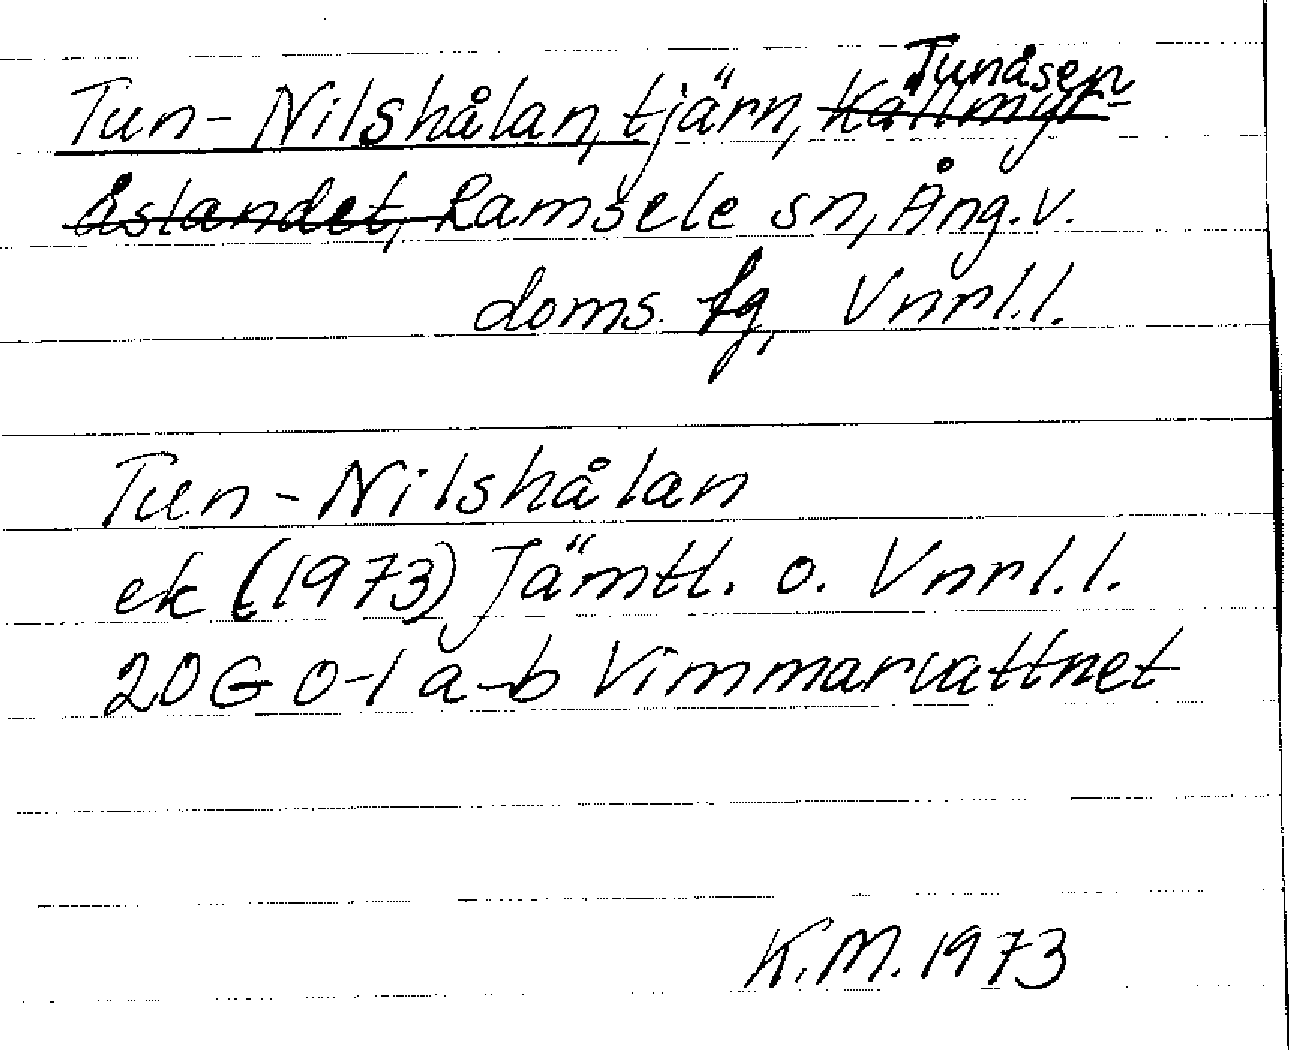 Tun-Nilshålan, tjärn, Källmyr- Tunåsen
åslandet, Ramsele sn, Ång.v.
doms. fg, Vnrl.l.
Tun-Nilshålan
ek (1973) Jämtl. o. Vnrl.l.
20G 0-1 a-b Vimmarvattnet
K.M. 1973